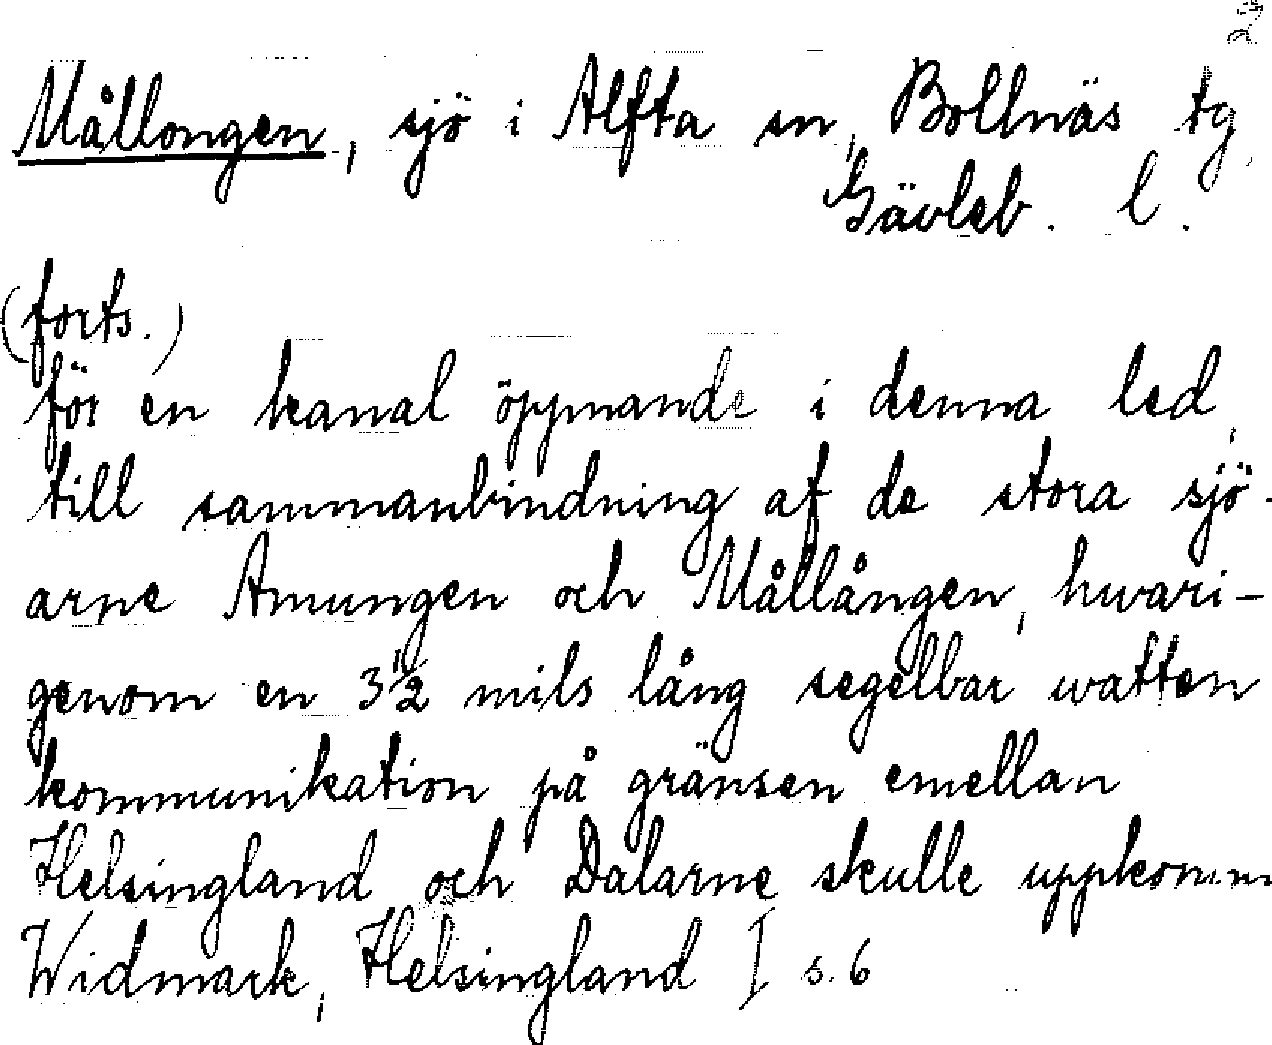 2
Mållongen, sjö i Alfta sn, Bollnäs tg
Gävleb. l.
(forts.)
för en kanal öppnande i denna led,
till sammanbindning af de stora sjö-
arne Amungen och Mållången, hwari-
genom en 3 1/2 mils lång segelbar watten
kommunikation på gränsen emellan
Helsingland och Dalarne skulle uppkomm
Widmark, Helsingland I s. 6